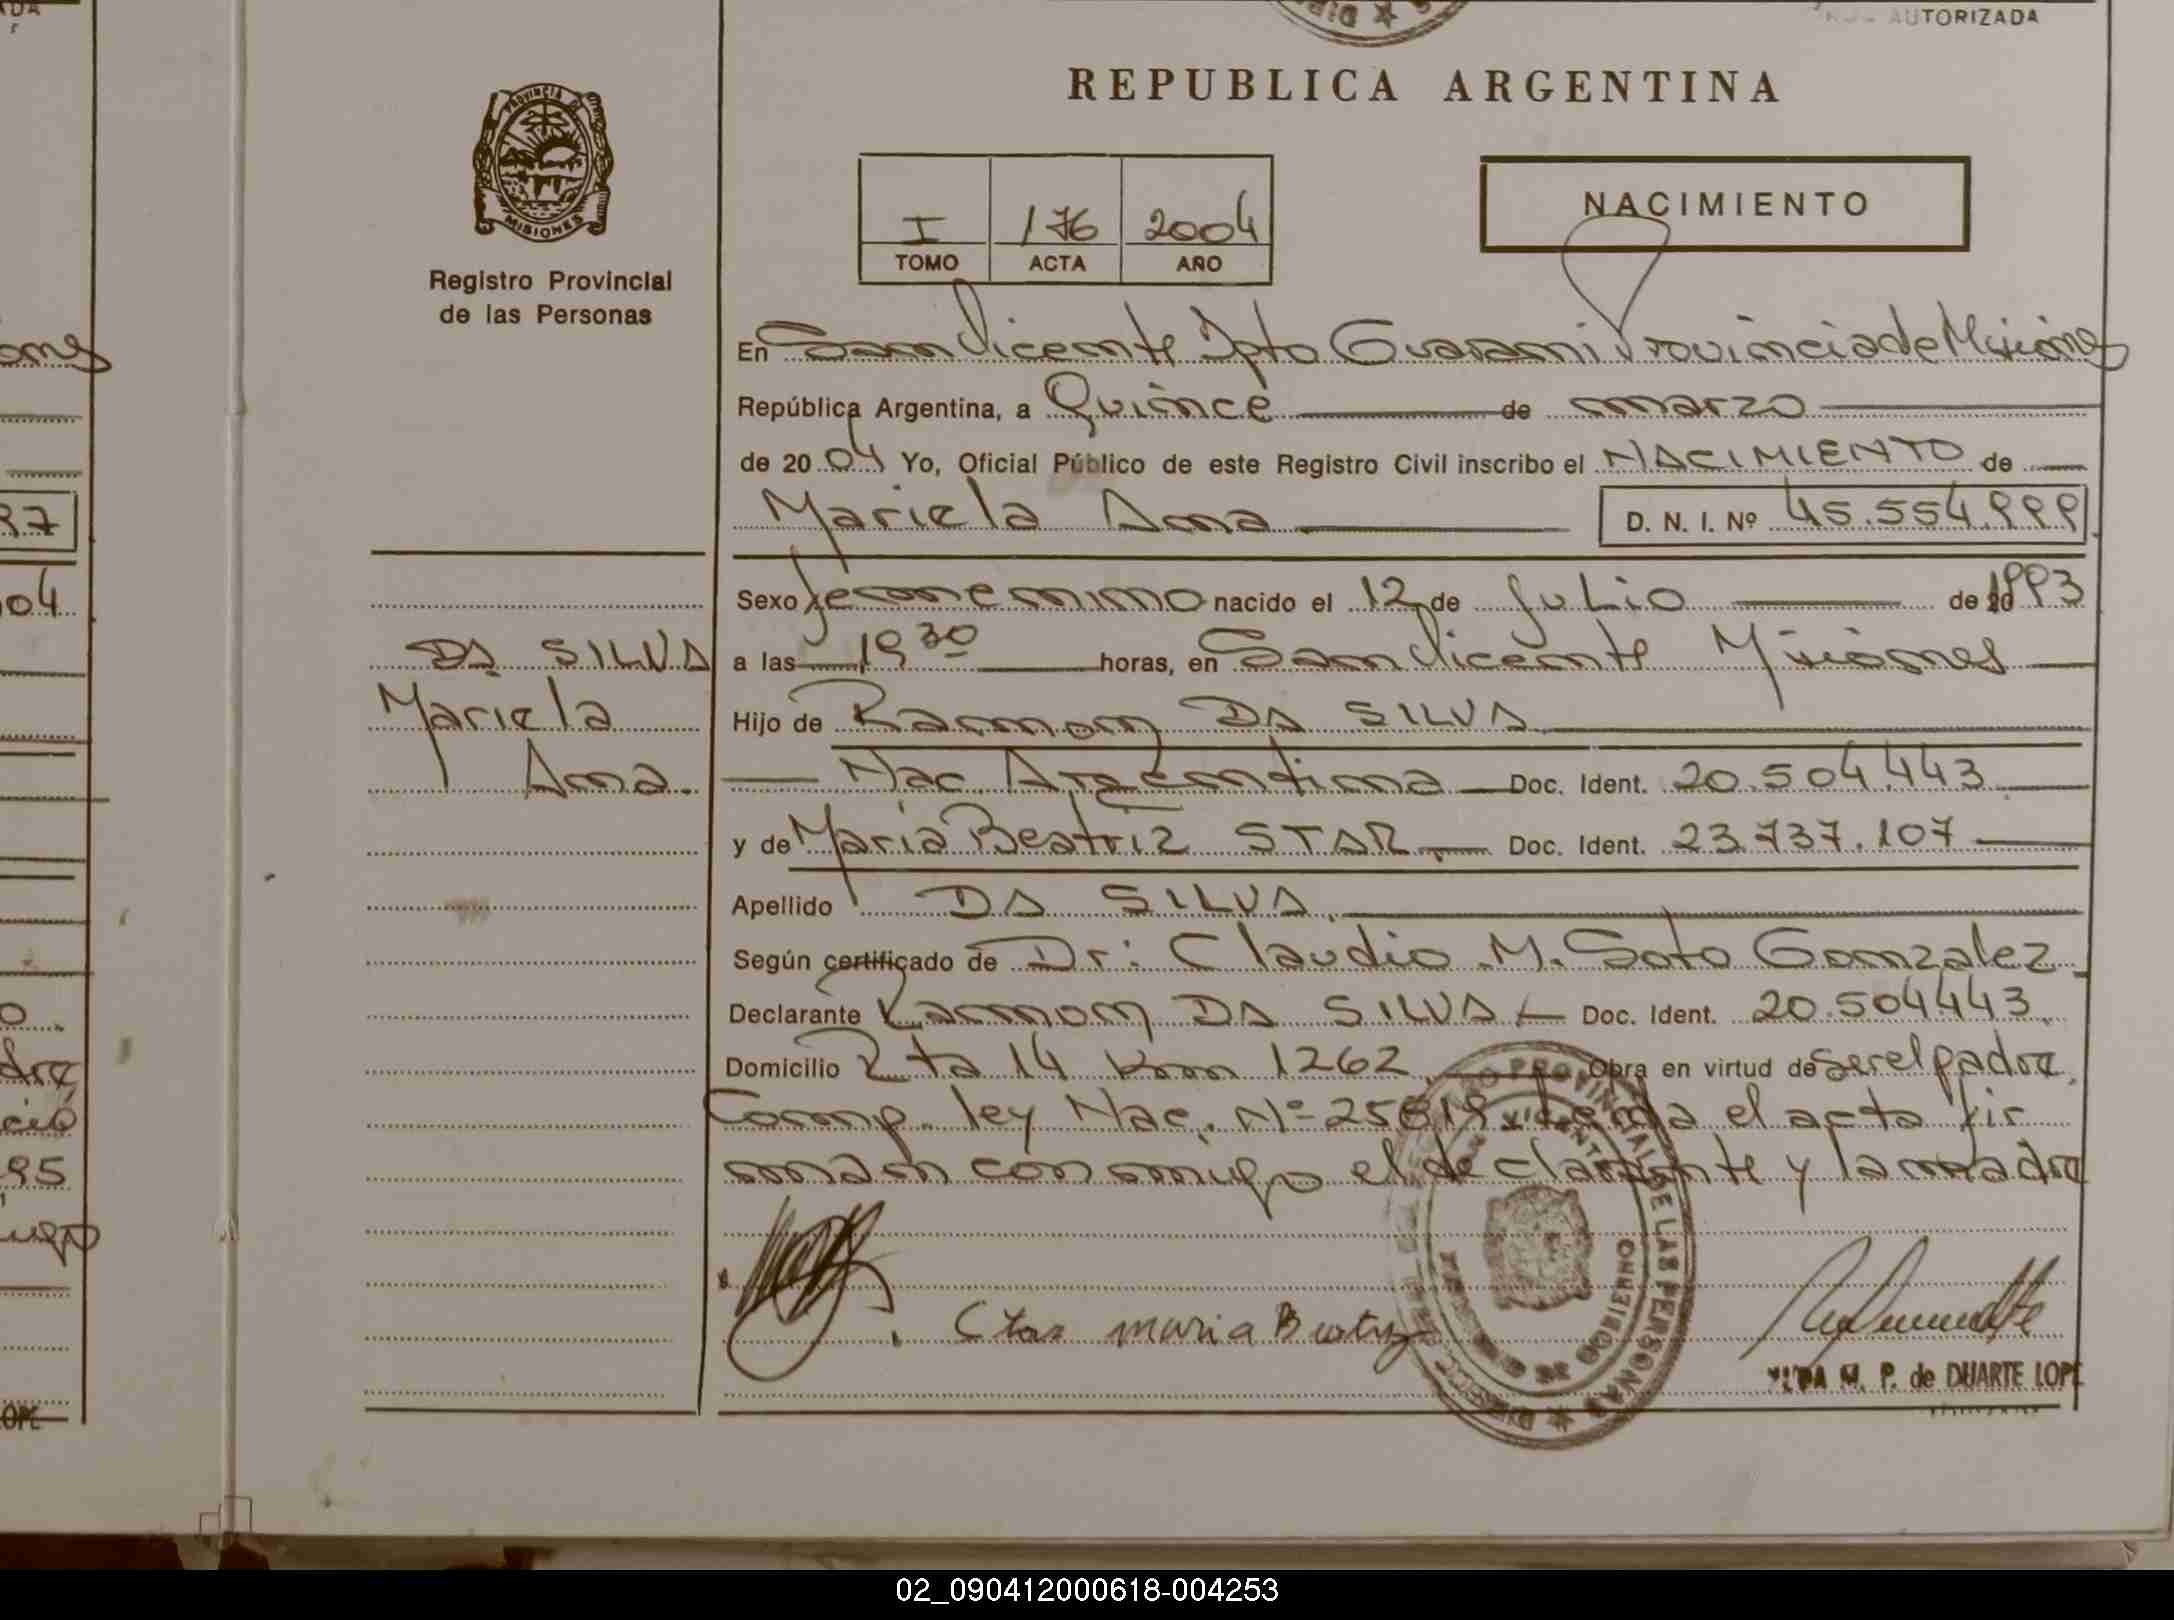 AUTORIZADA
REPUBLICA ARGENTINA
PROVINCIA DE
MISIONES
Registro Provincial
de las Personas
I 176 2004
TOMO ACTA AÑO
NACIMIENTO
En San Vicente Dpto Guarani Provincia de Misiones
República Argentina, a Quince de marzo
de 2004 Yo, Oficial Público de este Registro Civil inscribo el NACIMIENTO de
Mariela Ana D. N. I. Nº 45.554.999
Sexo femenino nacido el 12 de Julio de 1993
DA SILVA a las 19 30 horas, en San Vicente Misiones
Mariela Hijo de Ramon DA SILVA
Ana. Nac Argentina Doc. Ident. 20.504.443
y de Maria Beatriz STAR. Doc. Ident. 23.737.107
Apellido DA SILVA.
Según certificado de Dr: Claudio M. Soto Gonzalez
Declarante Ramon DA SILVA Doc. Ident. 20.504443.
Domicilio Rta 14 Km 1262 Obra en virtud de ser el padre.
Comp. ley Nac. Nº 25819 Leida el acta fir
man conmigo el declarante y la madre
maria Beatriz
PROVINCIAL DE LAS PERSONAS
GOBIERNO
M. P. de DUARTE LOPE
37
04
95
02_090412000618-004253